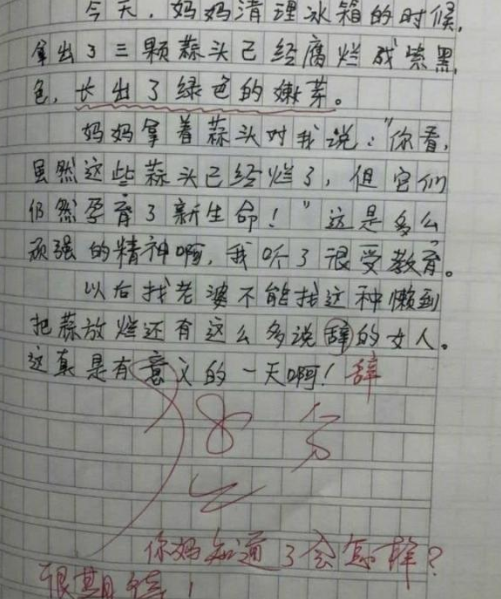 今天，妈妈清理冰箱的时候，
拿出了三颗蒜头已经腐烂成紫黑
色，长出了绿色的嫩芽。
妈妈拿着蒜头对我说："你看，
虽然这些蒜头已经烂了，但它们
仍然孕育了新生命！"这是多么
顽强的精神啊，我听了很受教育。
以后找老婆不能找这种懒到
把蒜放烂还有这么多说辞的女人。
这真是有意义的一天啊！辞
8分
你妈知道了会怎样？
很期待！